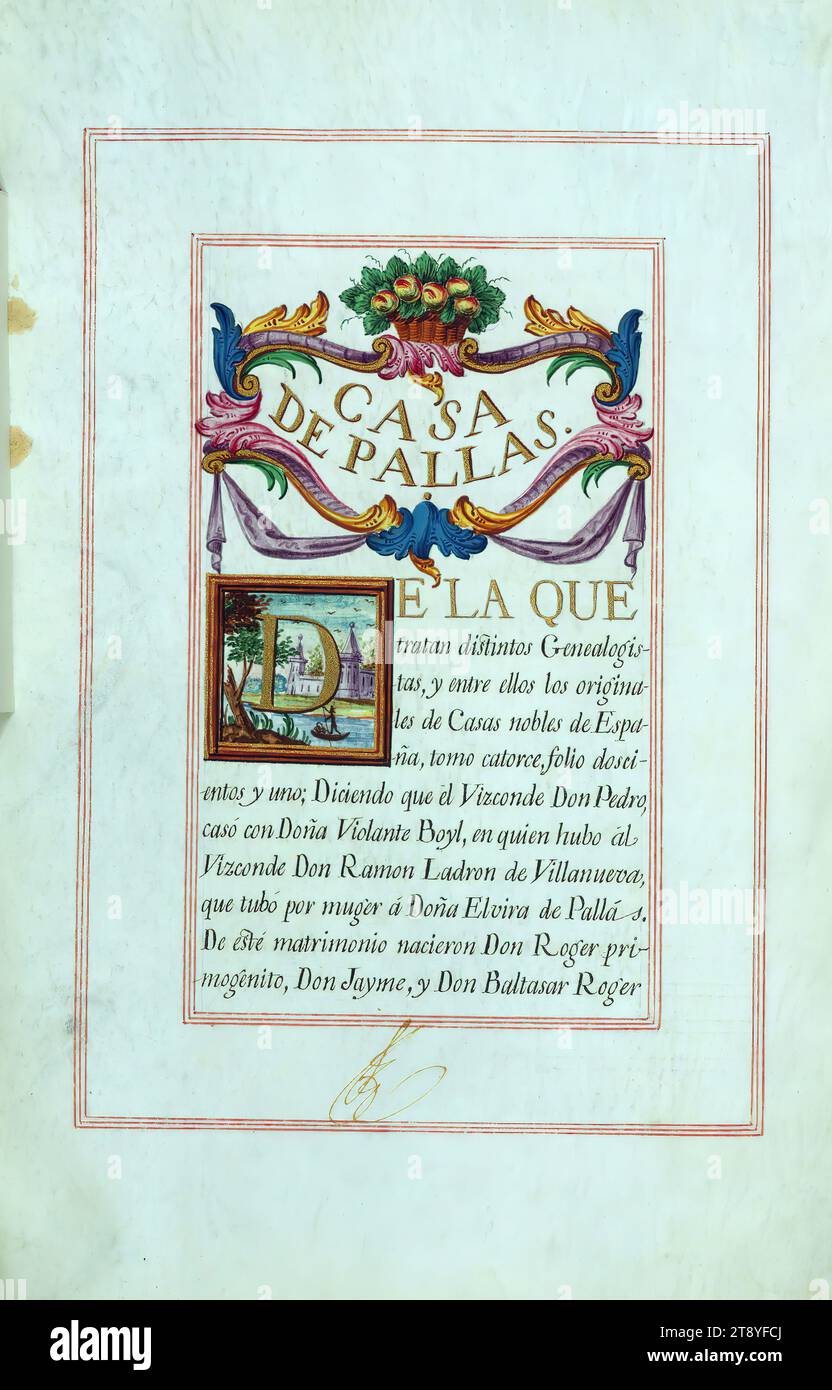 CASA
DE PALLAS.
DE LA QUE
tratan distintos Genealogis-
tas, y entre ellos los origina-
les de Casas nobles de Espa-
ña, tomo catorce, folio dosci-
entos y uno; Diciendo que él Vizconde Don Pedro,
casó con Doña Violante Boyl, en quien hubo ál
Vizconde Don Ramon Ladron de Villanueva,
que tubó por muger á Doña Elvira de Pallás.
De esté matrimonio nacieron Don Roger pri-
mogenito, Don Jayme, y Don Baltasar Roger
alamy
alamy
alamy
Image ID: 2T8YFCJ
www.alamy.com